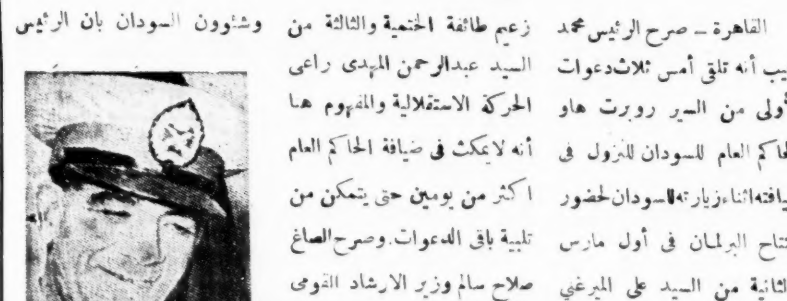 القاهرة ــ صرح الرئيس محمد
يب أنه تلقى أمس ثلاث دعوات
أولى من السير روبرت هاو
لحاكم العام للسودان للنزول فى
يافته اثناء زيارته للسودان لحضور
تتاح البرلمان فى أول مارس
الثانية من السيد على الميرغني
زعيم طائفة الختمية والثالثة من
السيد عبدالرحمن المهدى راعى
الحركة الاستقلالية والمفهوم هنا
أنه لايمكث فى ضيافة الحاكم العام
اكثر من يومين حتى يتمكن من
تلبية باقى الدعوات. وصرح الصاغ
صلاح سالم وزير الارشاد القومى
وشئوون السودان بان الرئيس